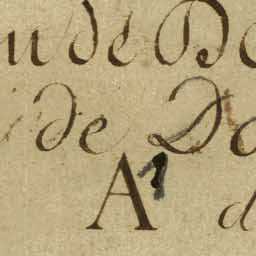 u de Do
de Do
A¹ d